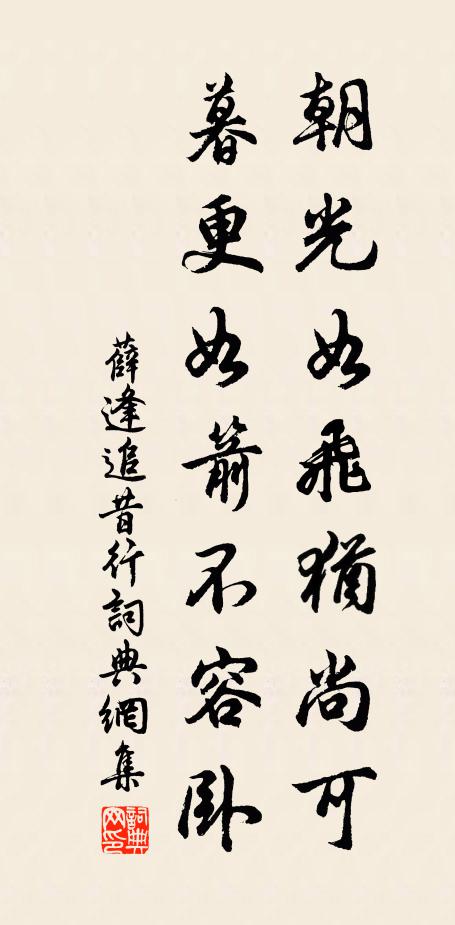 朝光如飛猶尚可
暮更如箭不容臥
薛逢追昔行詞典網集
詞典
網印